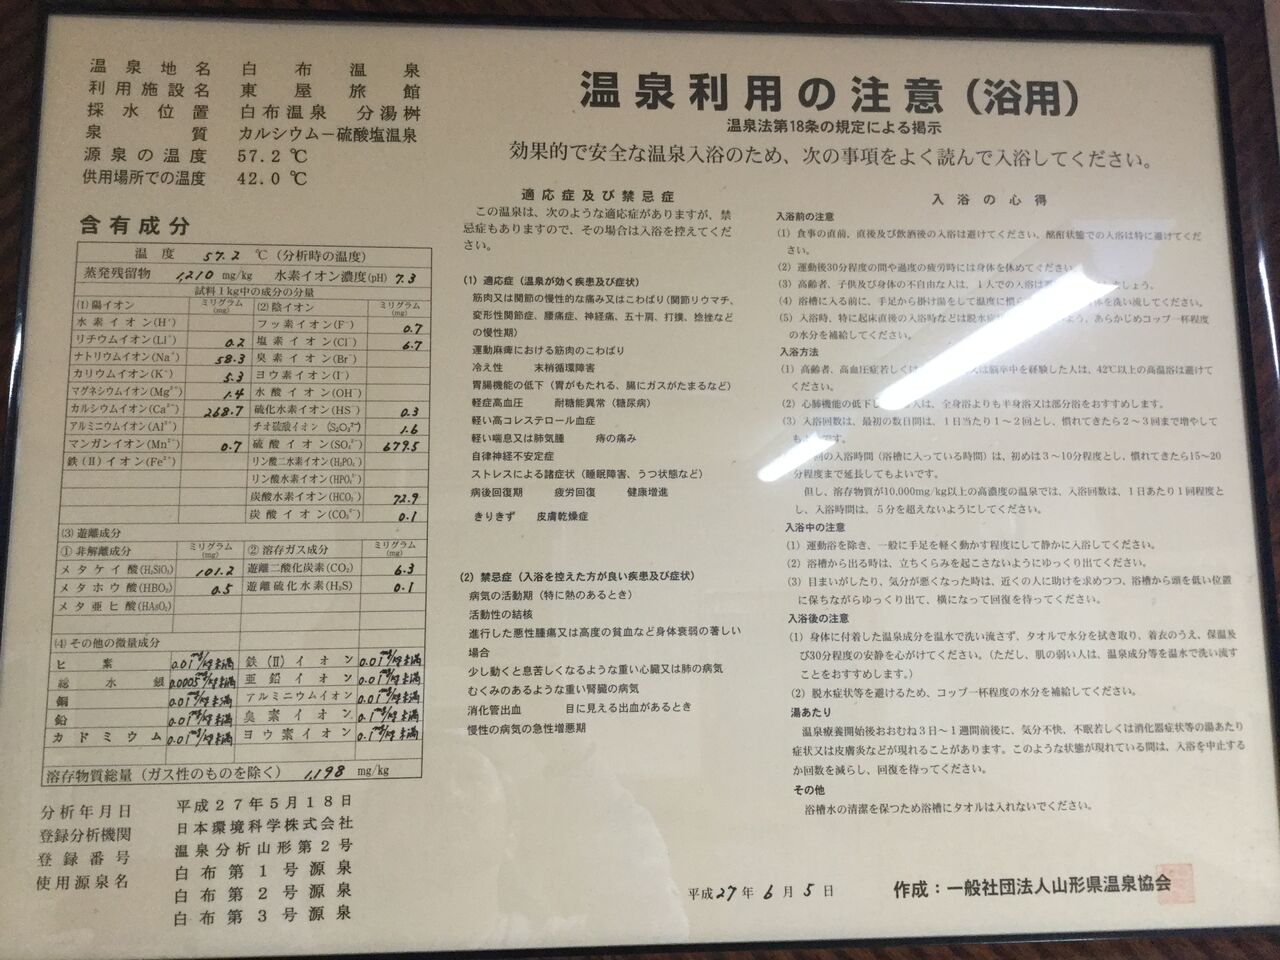 温泉地名 白布温泉
利用施設名 東屋旅館
採水位置 白布温泉 分湯桝
泉質 カルシウム－硫酸塩温泉
源泉の温度 57.2 ℃
供用場所での温度 42.0 ℃
含有成分
温度 57.2 ℃ (分析時の温度)
蒸発残留物 1,210 mg/kg 水素イオン濃度(pH) 7.3
試料1kg中の成分の分量
(1) 陽イオン ミリグラム(mg) (2) 陰イオン ミリグラム(mg)
水素イオン(H⁺) フッ素イオン(F⁻) 0.7
リチウムイオン(Li⁺) 0.2 塩素イオン(Cl⁻) 6.7
ナトリウムイオン(Na⁺) 58.3 臭素イオン(Br⁻)
カリウムイオン(K⁺) 5.3 ヨウ素イオン(I⁻)
マグネシウムイオン(Mg²⁺) 1.4 水酸イオン(OH⁻)
カルシウムイオン(Ca²⁺) 268.7 硫化水素イオン(HS⁻) 0.3
アルミニウムイオン(Al³⁺) チオ硫酸イオン(S₂O₃²⁻) 1.6
マンガンイオン(Mn²⁺) 0.7 硫酸イオン(SO₄²⁻) 679.5
鉄(Ⅱ)イオン(Fe²⁺) リン酸二水素イオン(H₂PO₄⁻)
リン酸水素イオン(HPO₄²⁻)
炭酸水素イオン(HCO₃⁻) 72.9
炭酸イオン(CO₃²⁻) 0.1
(3) 遊離成分
① 非解離成分 ミリグラム(mg) ② 溶存ガス成分 ミリグラム(mg)
メタケイ酸(H₂SiO₃) 101.2 遊離二酸化炭素(CO₂) 6.3
メタホウ酸(HBO₂) 0.5 遊離硫化水素(H₂S) 0.1
メタ亜ヒ酸(HAsO₂)
(4) その他の微量成分
ヒ素 0.01mg/kg未満 鉄(Ⅱ)イオン 0.01mg/kg未満
総水銀 0.0005mg/kg未満 亜鉛イオン 0.01mg/kg未満
銅 0.01mg/kg未満 アルミニウムイオン 0.01mg/kg未満
鉛 0.01mg/kg未満 臭素イオン 0.1mg/kg未満
カドミウム 0.01mg/kg未満 ヨウ素イオン 0.1mg/kg未満
溶存物質総量(ガス性のものを除く) 1,198 mg/kg
分析年月日 平成27年5月18日
登録分析機関 日本環境科学株式会社
登録番号 温泉分析山形第2号
使用源泉名 白布第1号源泉
白布第2号源泉
白布第3号源泉
温泉利用の注意(浴用)
温泉法第18条の規定による掲示
効果的で安全な温泉入浴のため、次の事項をよく読んで入浴してください。
適応症及び禁忌症
この温泉は、次のような適応症がありますが、禁
忌症もありますので、その場合は入浴を控えてくだ
さい。
(1) 適応症(温泉が効く疾患及び症状)
筋肉又は関節の慢性的な痛み又はこわばり(関節リウマチ、
変形性関節症、腰痛症、神経痛、五十肩、打撲、捻挫など
の慢性期)
運動麻痺における筋肉のこわばり
冷え性 末梢循環障害
胃腸機能の低下(胃がもたれる、腸にガスがたまるなど)
軽症高血圧 耐糖能異常(糖尿病)
軽い高コレステロール血症
軽い喘息又は肺気腫 痔の痛み
自律神経不安定症
ストレスによる諸症状(睡眠障害、うつ状態など)
病後回復期 疲労回復 健康増進
きりきず 皮膚乾燥症
(2) 禁忌症(入浴を控えた方が良い疾患及び症状)
病気の活動期(特に熱のあるとき)
活動性の結核
進行した悪性腫瘍又は高度の貧血など身体衰弱の著しい
場合
少し動くと息苦しくなるような重い心臓又は肺の病気
むくみのあるような重い腎臓の病気
消化管出血 目に見える出血があるとき
慢性の病気の急性増悪期
入浴の心得
入浴前の注意
(1) 食事の直前、直後及び飲酒後の入浴は避けてください。酩酊状態での入浴は特に避けてくだ
さい。
(2) 運動後30分程度の間や過度の疲労時には身体を休めてください。
(3) 高齢者、子供及び身体の不自由な人は、1人での入浴は しょう。
(4) 浴槽に入る前に、手足から掛け湯をして温度に慣ら 体を洗い流してください。
(5) 入浴時、特に起床直後の入浴時などは脱水症 よう、あらかじめコップ一杯程度
の水分を補給してください。
入浴方法
(1) 高齢者、高血圧症若しくは 又は脳卒中を経験した人は、42℃以上の高温浴は避けて
ください。
(2) 心肺機能の低下し 人は、全身浴よりも半身浴又は部分浴をおすすめします。
(3) 入浴回数は、最初の数日間は、1日当たり1～2回とし、慣れてきたら2～3回まで増やして
も です。
回の入浴時間(浴槽に入っている時間)は、初めは3～10分程度とし、慣れてきたら15～20
分程度まで延長してもよいです。
但し、溶存物質が10,000mg/kg以上の高濃度の温泉では、入浴回数は、1日あたり1回程度と
し、入浴時間は、5分を超えないようにしてください。
入浴中の注意
(1) 運動浴を除き、一般に手足を軽く動かす程度にして静かに入浴してください。
(2) 浴槽から出る時は、立ちくらみを起こさないようにゆっくり出てください。
(3) 目まいがしたり、気分が悪くなった時は、近くの人に助けを求めつつ、浴槽から頭を低い位置
に保ちながらゆっくり出て、横になって回復を待ってください。
入浴後の注意
(1) 身体に付着した温泉成分を温水で洗い流さず、タオルで水分を拭き取り、着衣のうえ、保温及
び30分程度の安静を心がけてください。(ただし、肌の弱い人は、温泉成分等を温水で洗い流す
ことをおすすめします。)
(2) 脱水症状等を避けるため、コップ一杯程度の水分を補給してください。
湯あたり
温泉療養開始後おおむね3日～1週間前後に、気分不快、不眠若しくは消化器症状等の湯あたり
症状又は皮膚炎などが現れることがあります。このような状態が現れている間は、入浴を中止する
か回数を減らし、回復を待ってください。
その他
浴槽水の清潔を保つため浴槽にタオルは入れないでください。
平成27年6月5日 作成：一般社団法人山形県温泉協会